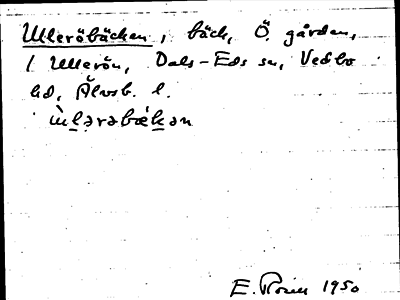 Ulleröbäcken, bäck, Ö. gården,
/ Ullerön, Dals-Eds sn, Vedbo
hd, Älvsb. l.
ùlərəbækən
E. 1950